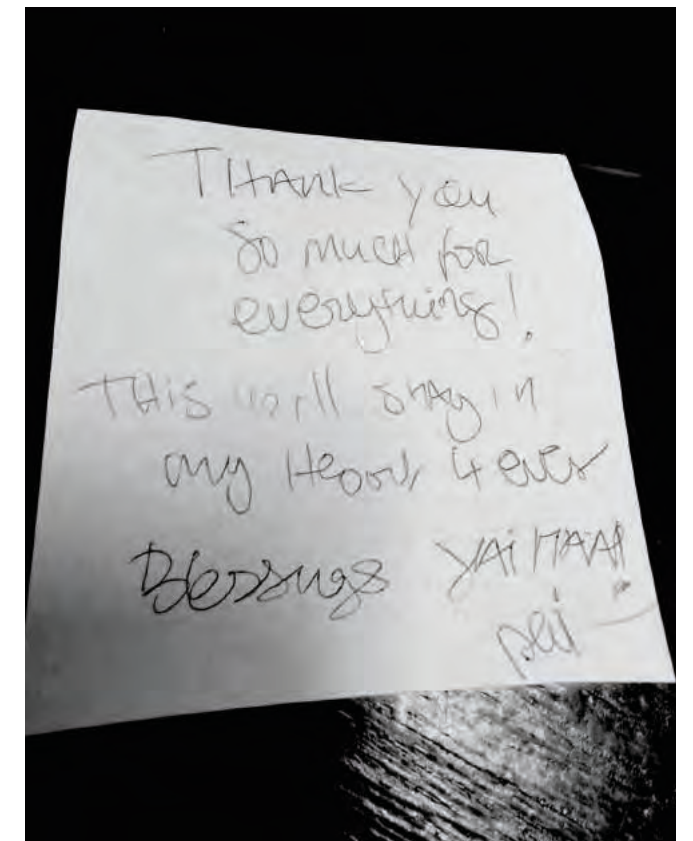 THANK you
so much for
everything!
THis will stay in
my Heart 4 ever
Blessings YAi MAA!